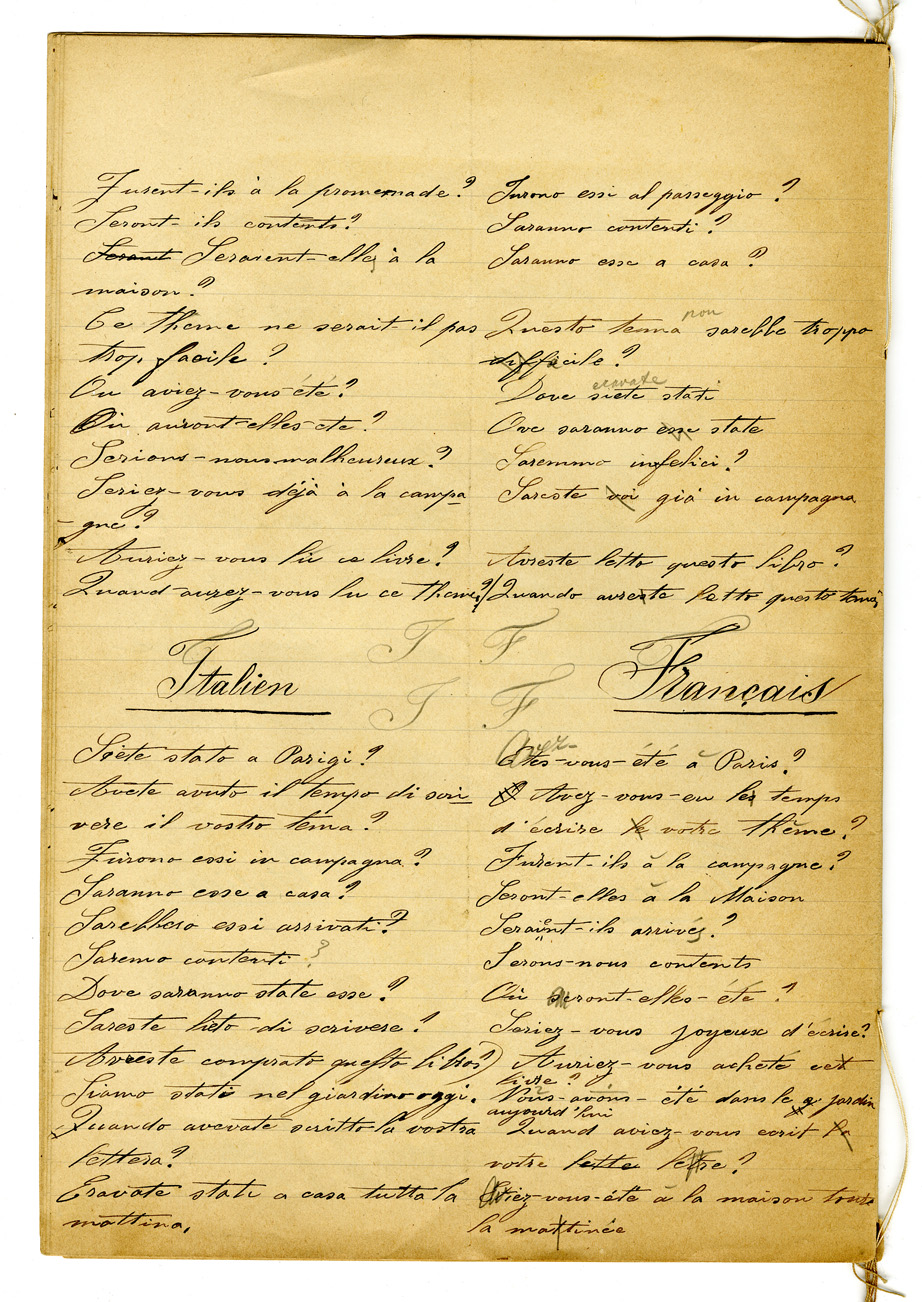 Furent-ils à la promenade ?
Seront-ils contents ?
Seraient Seraient-elles à la
maison ?
Ce thème ne serait-il pas
trop facile ?
Ou aviez-vous-été ?
Où auront-elles-ete ?
Serions-nous malheureux ?
Seriez-vous déjà à la campa
-gne ?
Auriez-vous lu ce livre ?
Quand-aurez-vous lu ce theme ?
Furono essi al passeggio ?
Saranno contenti ?
Saranno esse a casa ?
non
Questo tema sarebbe troppo
difficile ?
eravate
Dove siete stati
Ove saranno esse state
Saremmo infelici ?
Sareste voi già in campagna
Avreste letto questo libro ?
Quando avreste letto questo tema
I F
Italien
Français
I F
Siete stato a Parigi ?
Avete avuto il tempo di scri
vere il vostro tema ?
Furono essi in campagna ?
Saranno esse a casa ?
Sarebbero essi arrivati ?
Saremo contenti ?
Dove saranno state esse ?
Sareste lieto di scrivere ?
Avreste comprato questo libro ?
Siamo stati nel giardino oggi.
Quando avevate scritto la vostra
lettera ?
Eravate stati a casa tutta la
mattina.
Avez-
Êtes-vous-été à Paris ?
Avez-vous-eu les temps
d'écrire le votre thême ?
Furent-ils à la campagne ?
Seront-elles à la Maison
Seraient-ils arrivés ?
Serons-nous contents
Où seront-elles-été ?
Seriez-vous joyeux d'écrire ?
Auriez-vous acheté cet
livre ?
Nous-avons-été dans le jardin
aujourd'hui
Quand aviez-vous ecrit la
votre lette lettre ?
Aviez-vous-été à la maison toute
la mattinée